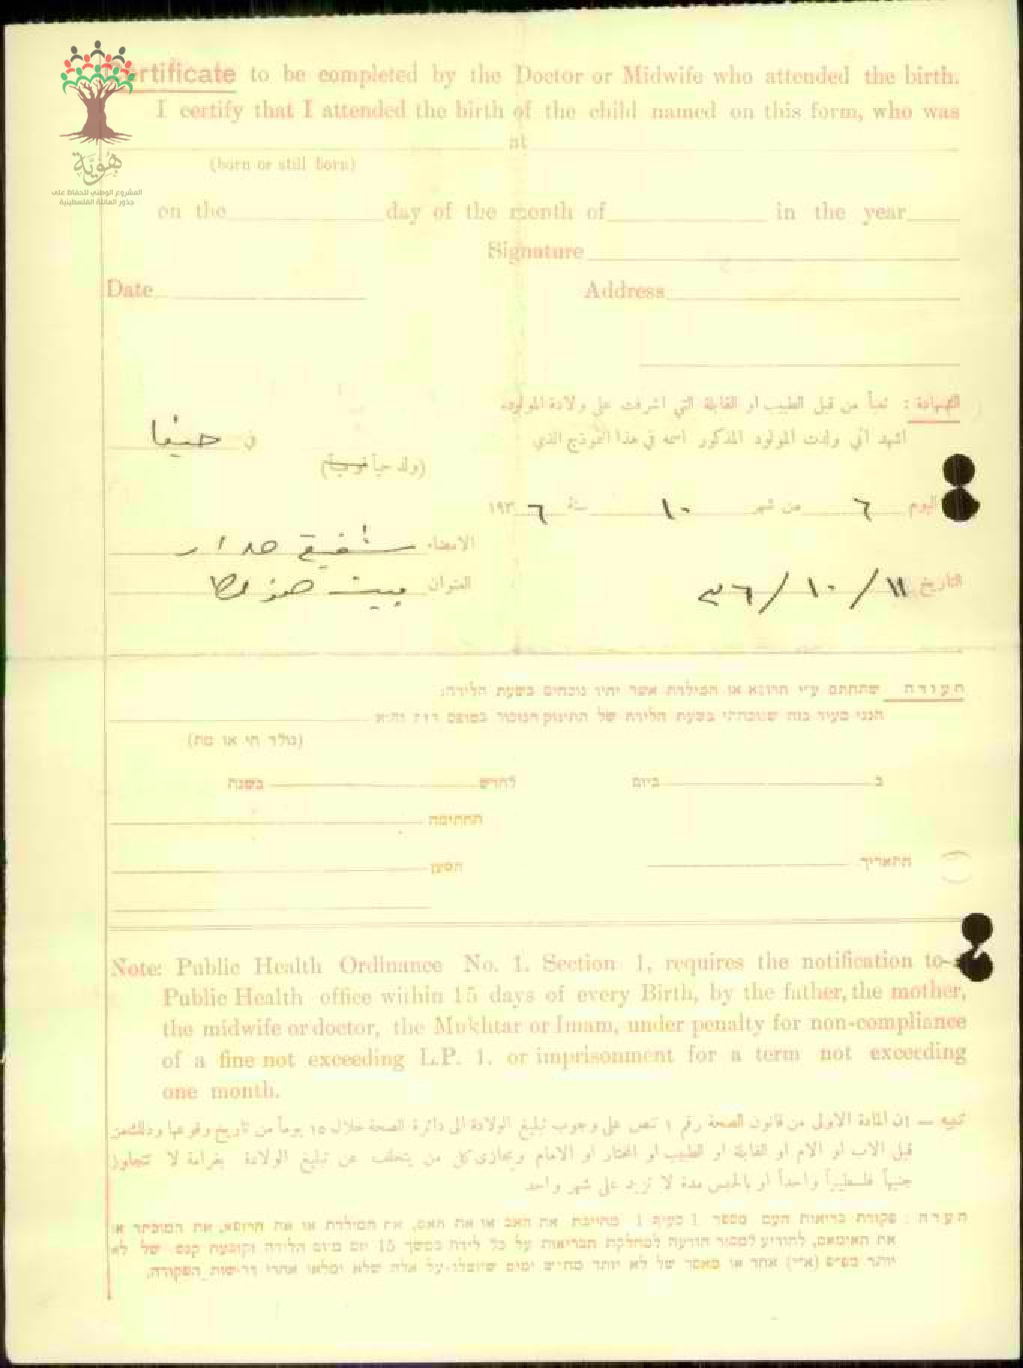 Certificate to be completed by the Doctor or Midwife who attended the birth.
I certify that I attended the birth of the child named on this form, who was
at
(born or still born)
هُوِيَّة
المشروع الوطني للحفاظ على
جذور العائلة الفلسطينية
on the day of the month of in the year
Signature
Date Address
الشهادة : تعبأ من قبل الطبيب او القابلة التي اشرفت على ولادة المولود.
اشهد اني ولدت المولود المذكور اسمه في هذا النموذج الذي
في حيفا
(ولد حياً او ميتاً)
اليوم ٦ من شهر ١٠ سنة ١٩٣٦
الامضاء شفيق حداد
العنوان بيت
التاريخ ١١/١٠/٣٦
תעודה שתחתם ע״י הרופא או המילדת אשר יהיו נוכחים בשעת הלידה:
הנני מעיד בזה שנוכחתי בשעת הלידה של התינוק הנזכר בטופס הזה והוא
(נולד חי או מת)
ב ביום לחדש בשנת
החתימה
התאריך המען
Note: Public Health Ordinance No. 1. Section 1, requires the notification to a
Public Health office within 15 days of every Birth, by the father, the mother,
the midwife or doctor, the Mukhtar or Imam, under penalty for non-compliance
of a fine not exceeding L.P. 1. or imprisonment for a term not exceeding
one month.
تنبيه — ان المادة الاولى من قانون الصحة رقم ١ تنص على وجوب تبليغ الولادة الى دائرة الصحة خلال ١٥ يوماً من تاريخ وقوعها وذلك من
قبل الاب او الام او القابلة او الطبيب او المختار او الامام ويجازى كل من يتخلف عن تبليغ الولادة بغرامة لا تتجاوز
جنيهاً فلسطينياً واحداً او بالحبس مدة لا تزيد على شهر واحد.
הערה : פקודת בריאות העם מספר 1 סעיף 1 מחייבת את האב או את האם, את המילדת או את הרופא, את המוכתר או
את האימאם, להודיע למסור הודעה למחלקת הבריאות על כל לידה במשך 15 יום מיום הלידה וקובעת קנס של לא
יותר מפ״פ (א״י) אחד או מאסר של לא יותר מחודש ימים שיוטלו על אלה שלא ימלאו אחרי דרישות הפקודה.